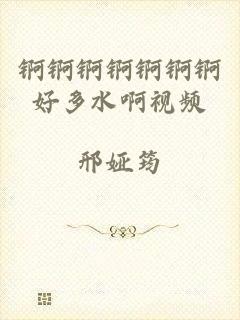 锕锕锕锕锕锕锕
好多水啊视频
邢娅筠